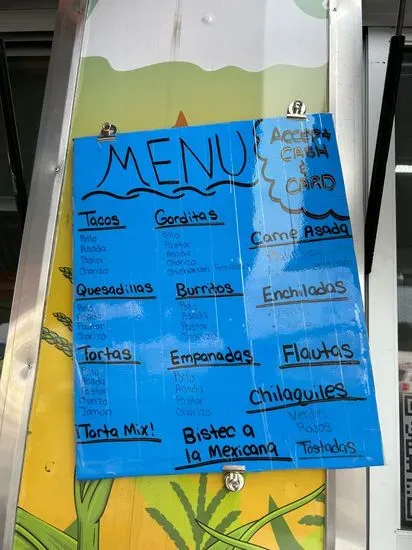 MENU
ACCEPT
CASH
&
CARD
Tacos
Pollo
Asada
Pastor
Chorizo
Gorditas
Pollo
Pastor
Asada
Chorizo
Chicharron
Carne Asada
Quesadillas
Pollo
Asada
Pastor
Chorizo
Burritos
Pollo
Asada
Pastor
Chorizo
Enchiladas
Tortas
Pollo
Asada
Pastor
Chorizo
Jamon
Empanadas
Pollo
Asada
Pastor
Chorizo
Flautas
Chilaquiles
Verdes
Rojos
¡Torta Mix!
Bistec a
la Mexicana
Tostadas